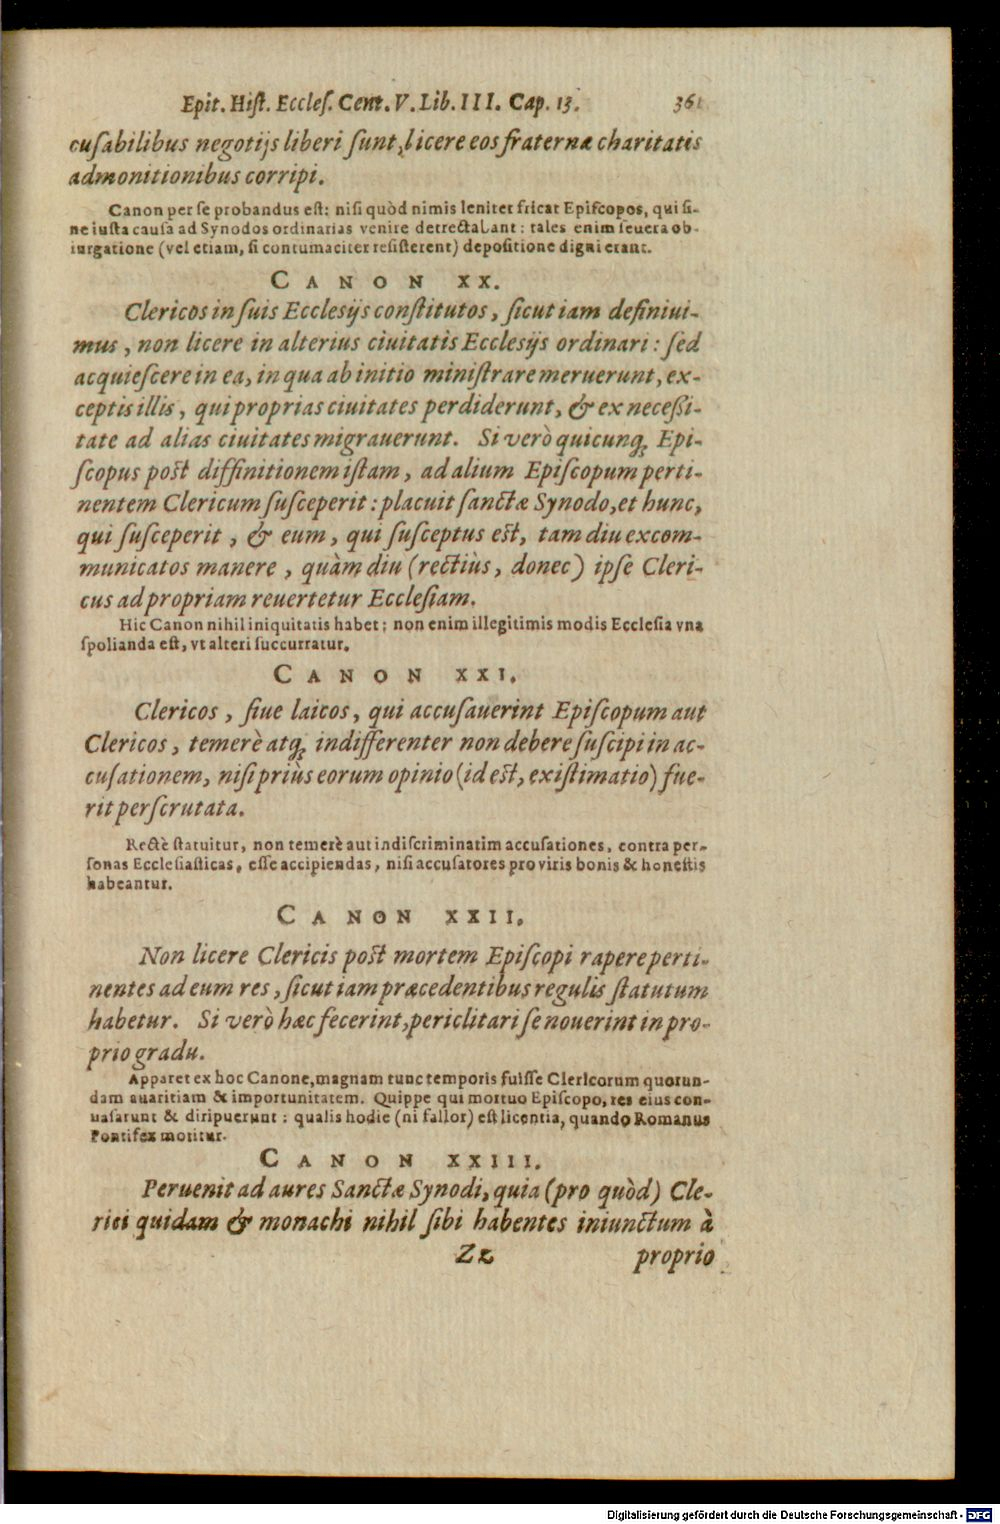 Epit. Hiſt. Eccleſ. Cent. V. Lib. III. Cap. 13. 361
cuſabilibus negotijs liberi ſunt, licere eos fraternæ charitatis
admonitionibus corripi.
Canon per ſe probandus eſt: niſi quòd nimis leniter fricat Epiſcopos, qui ſi-
ne iuſta cauſa ad Synodos ordinarias venire detrectabant: tales enim ſeuera ob-
iurgatione (vel etiam, ſi contumaciter reſiſterent) depoſitione digni erant.
CANON XX.
Clericos in ſuis Eccleſijs conſtitutos, ſicut iam definiui-
mus, non licere in alterius ciuitatis Eccleſijs ordinari: ſed
acquieſcere in ea, in qua ab initio miniſtrare meruerunt, ex-
ceptis illis, qui proprias ciuitates perdiderunt, & ex neceßi-
tate ad alias ciuitates migrauerunt. Si verò quicunq; Epi-
ſcopus poſt diffinitionem iſtam, ad alium Epiſcopum perti-
nentem Clericum ſuſceperit: placuit ſanctæ Synodo, et hunc,
qui ſuſceperit, & eum, qui ſuſceptus eſt, tam diu excom-
municatos manere, quàm diu (rectiùs, donec) ipſe Cleri-
cus ad propriam reuertetur Eccleſiam.
Hic Canon nihil iniquitatis habet: non enim illegitimis modis Eccleſia vna
ſpolianda eſt, vt alteri ſuccurratur.
CANON XXI.
Clericos, ſiue laicos, qui accuſauerint Epiſcopum aut
Clericos, temerè atq; indifferenter non debere ſuſcipi in ac-
cuſationem, niſi priùs eorum opinio (id eſt, exiſtimatio) fue-
rit perſcrutata.
Rectè ſtatuitur, non temerè aut indiſcriminatim accuſationes, contra per-
ſonas Eccleſiaſticas, eſſe accipiendas, niſi accuſatores pro viris bonis & honeſtis
habeantur.
CANON XXII.
Non licere Clericis poſt mortem Epiſcopi rapere perti-
nentes ad eum res, ſicut iam præcedentibus regulis ſtatutum
habetur. Si verò hæc fecerint, periclitari ſe nouerint in pro-
prio gradu.
Apparet ex hoc Canone, magnam tunc temporis fuiſſe Clericorum quorun-
dam auaritiam & importunitatem. Quippe qui mortuo Epiſcopo, res eius con-
uaſarunt & diripuerunt: qualis hodie (ni fallor) eſt licentia, quando Romanus
Pontifex moritur.
CANON XXIII.
Peruenit ad aures Sanctæ Synodi, quia (pro quòd) Cle-
rici quidam & monachi nihil ſibi habentes iniunctum à
Zz proprio
Digitalisierung gefördert durch die Deutsche Forschungsgemeinschaft - DFG